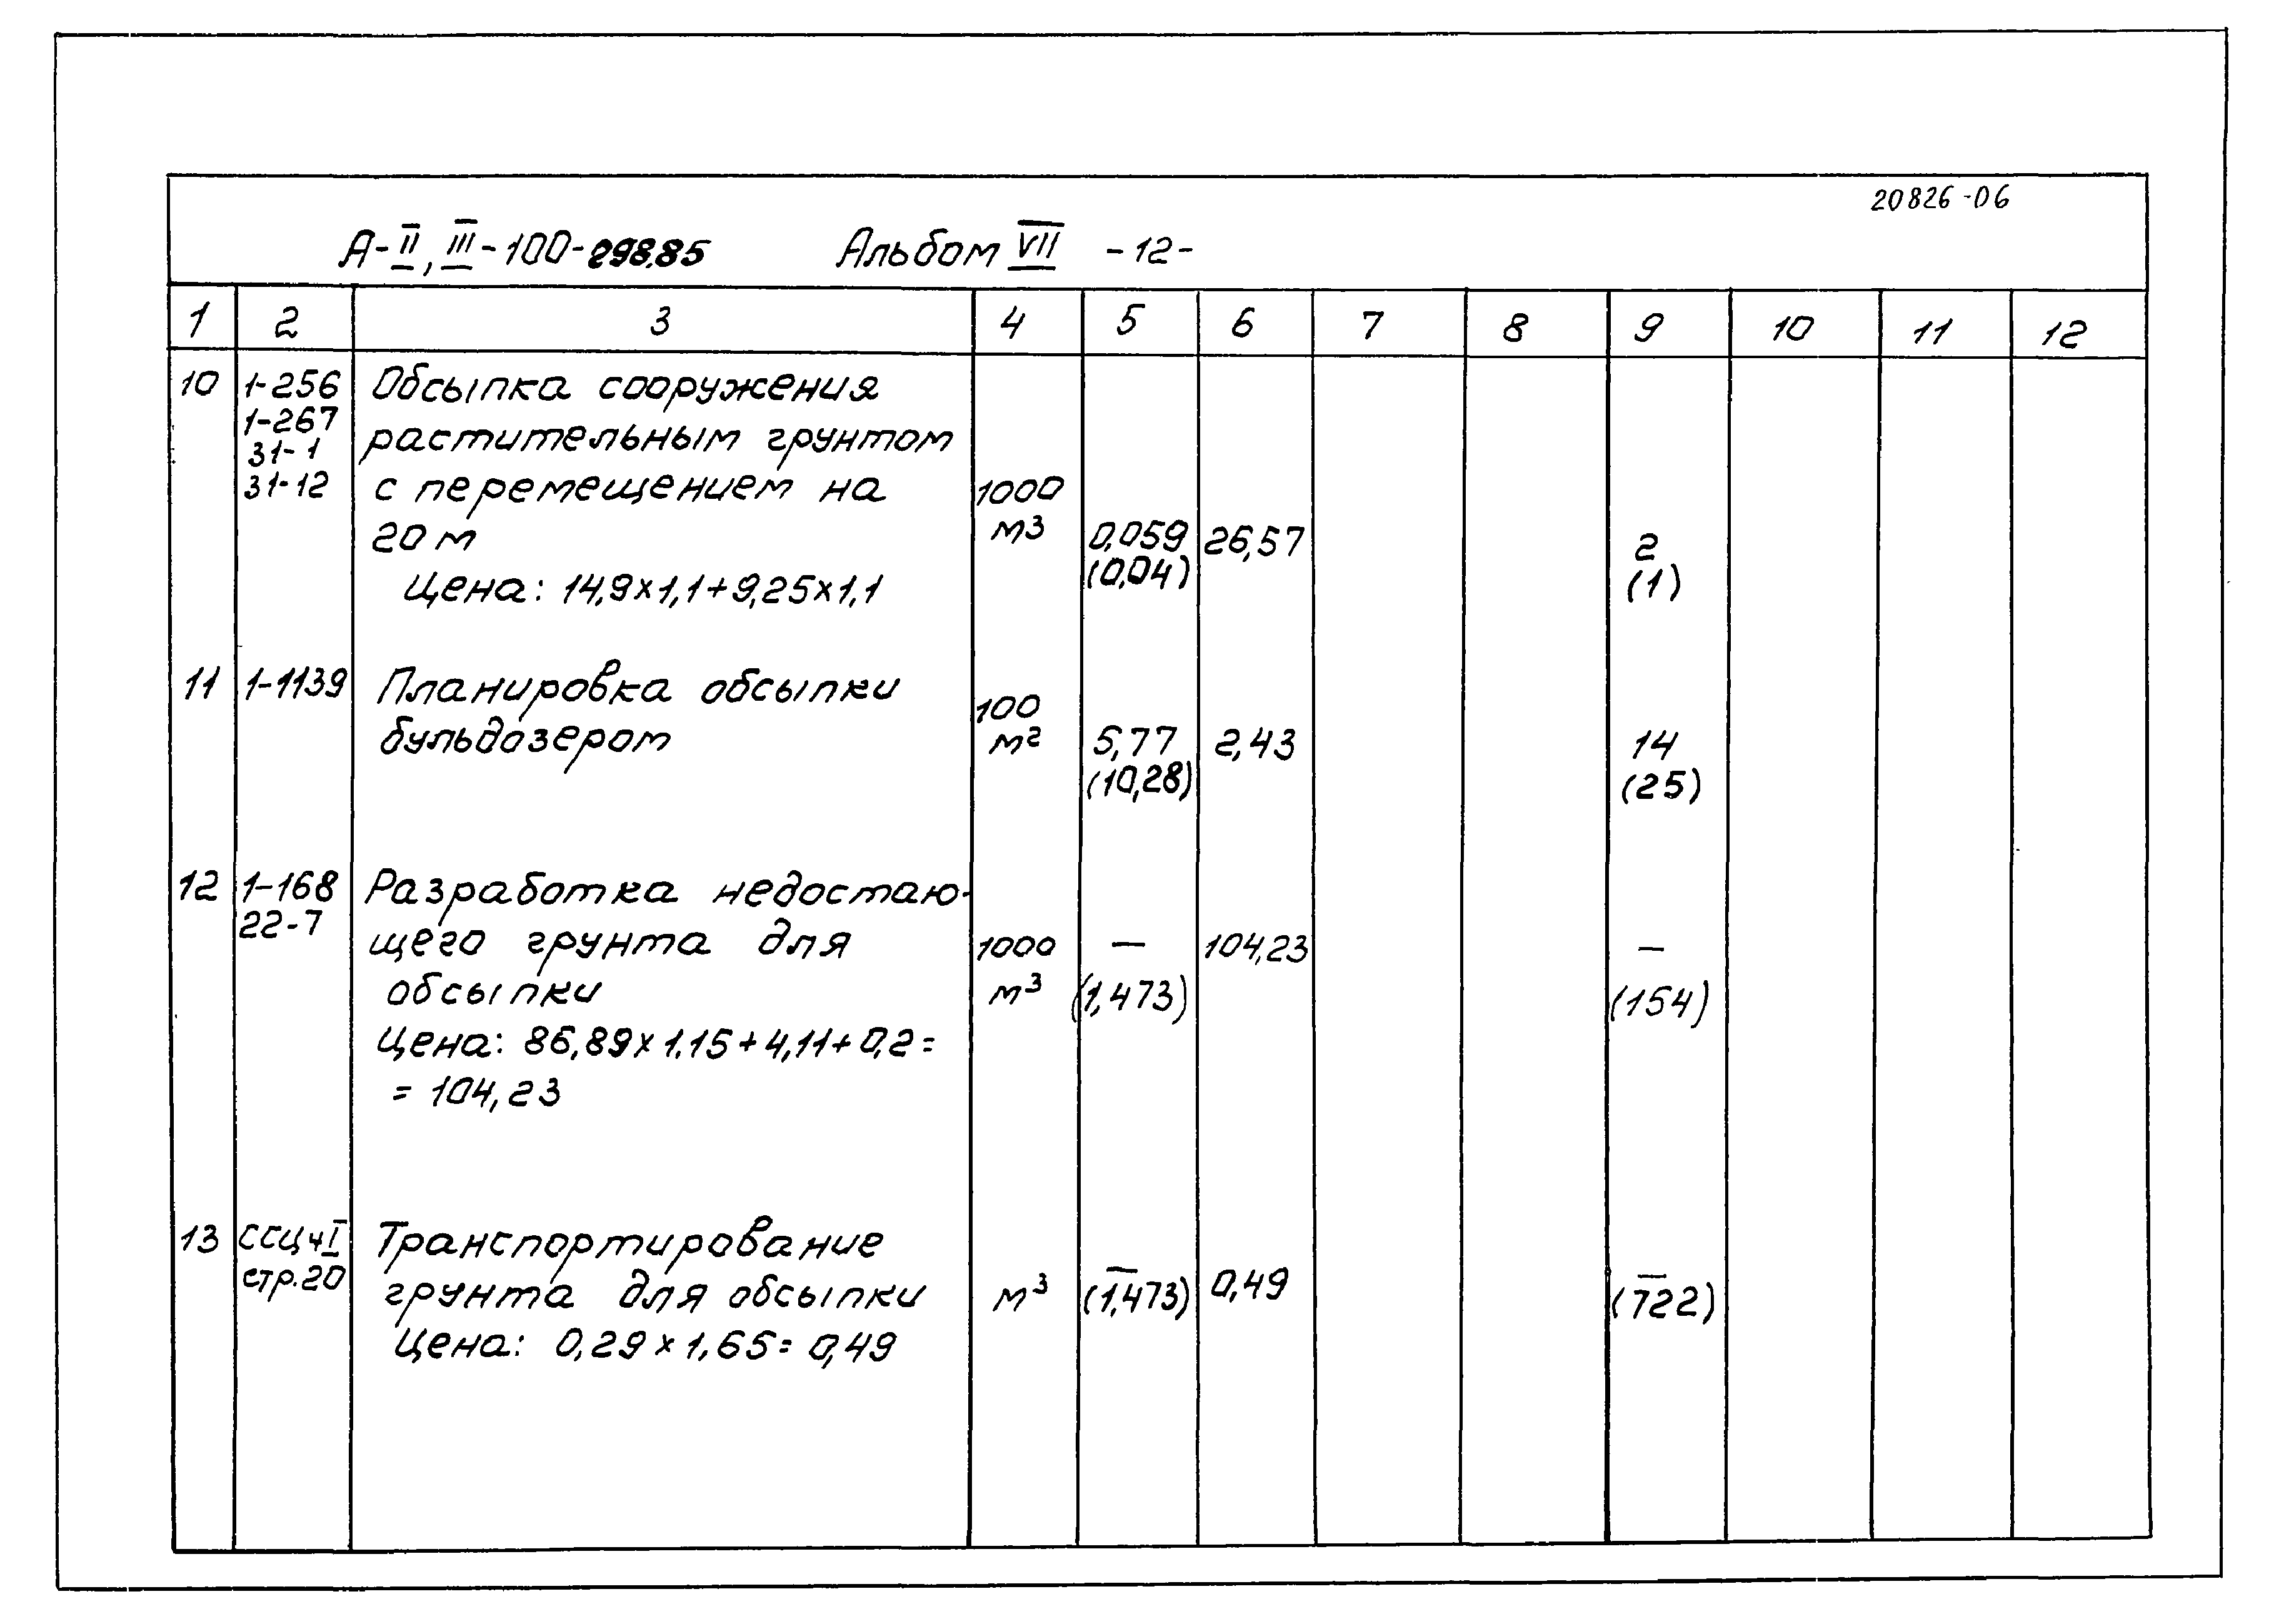 20826-06
А-II, III-100-298.85 Альбом VII -12-
1 2 3 4 5 6 7 8 9 10 11 12
10 1-256 Обсыпка сооружения
1-267 растительным грунтом
31-1
31-12 с перемещением на 1000
20 м м3 0,059 26,57 2
Цена: 14,9×1,1+9,25×1,1 (0,04) (1)
11 1-1139 Планировка обсыпки 100
бульдозером м2 5,77 2,43 14
(10,28) (25)
12 1-168 Разработка недостаю-
22-7 щего грунта для 1000 — 104,23 —
обсыпки м3 (1,473) (154)
Цена: 86,89×1,15+4,11+0,2=
= 104,23
13 ССЦ ч I Транспортирование
стр.20 грунта для обсыпки м3 — (1,473) 0,49 — (722)
Цена: 0,29×1,65= 0,49